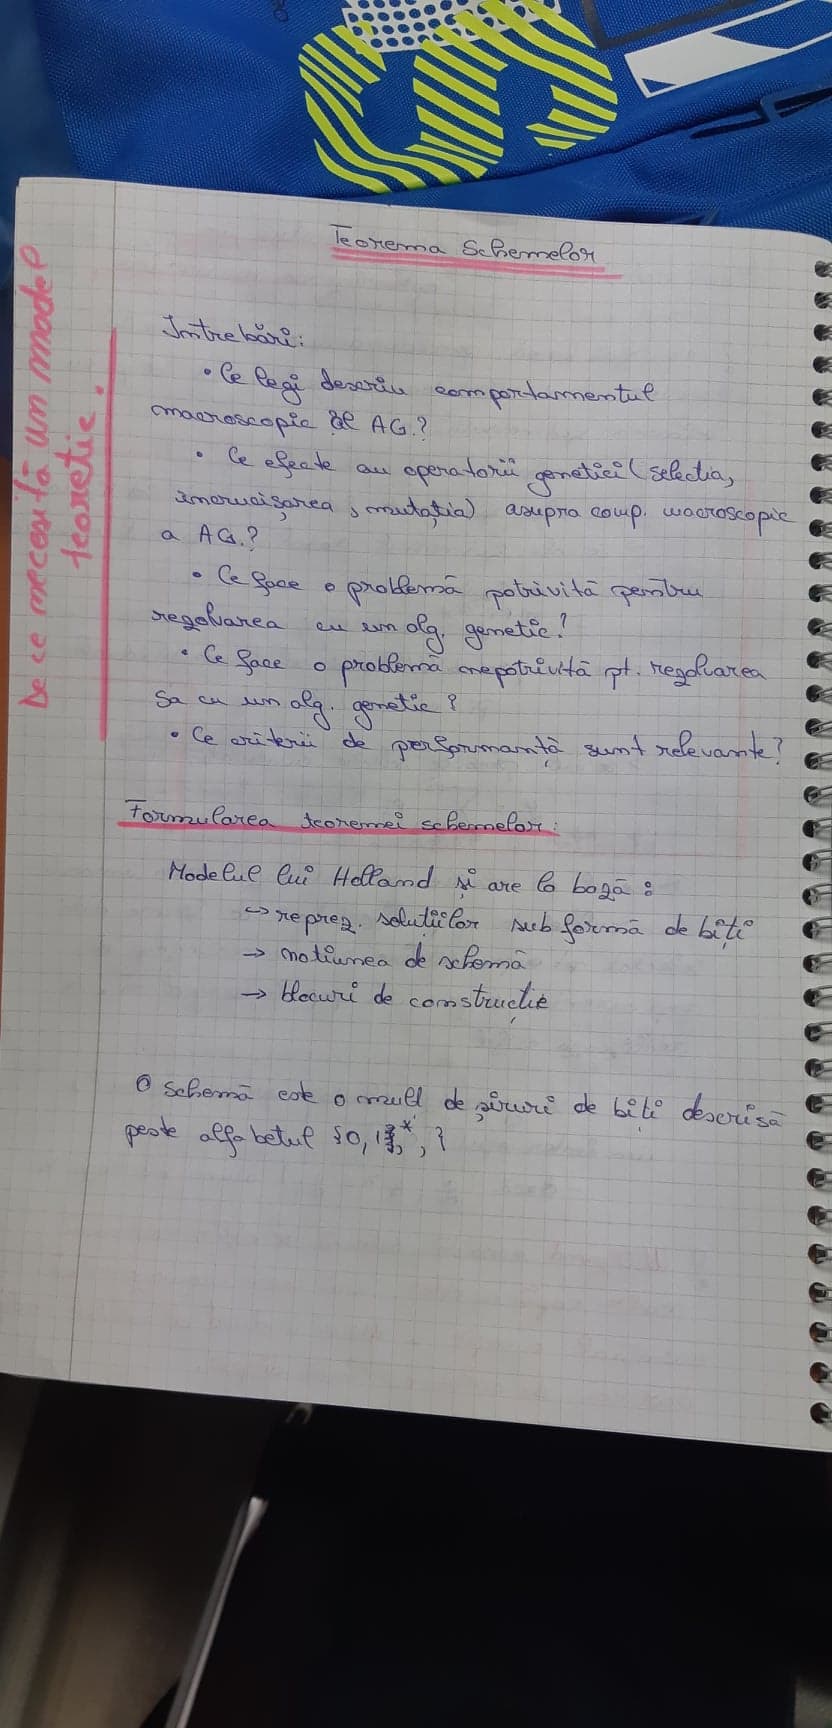 Teorema Schemelor
De ce necesită un model
teoretic.
Întrebări:
• Ce legi descriu comportamentul
macroscopic al AG.?
• Ce efecte au operatorii genetici (selectia,
încrucișarea, mutația) asupra comp. macroscopic
a AG.?
• Ce face o problemă potrivită pentru
rezolvarea cu un alg. genetic?
• Ce face o problemă nepotrivită pt. rezolvarea
sa cu un alg. genetic?
• Ce criterii de performanță sunt relevante?
Formularea teoremei schemelor:
Modelul lui Holland și are la bază:
→ reprez. soluțiilor sub formă de biți
→ notiunea de schemă
→ blocuri de construcție
O schemă este o mult de șiruri de biți descrisă
peste alfabetul {0, 1, *, }